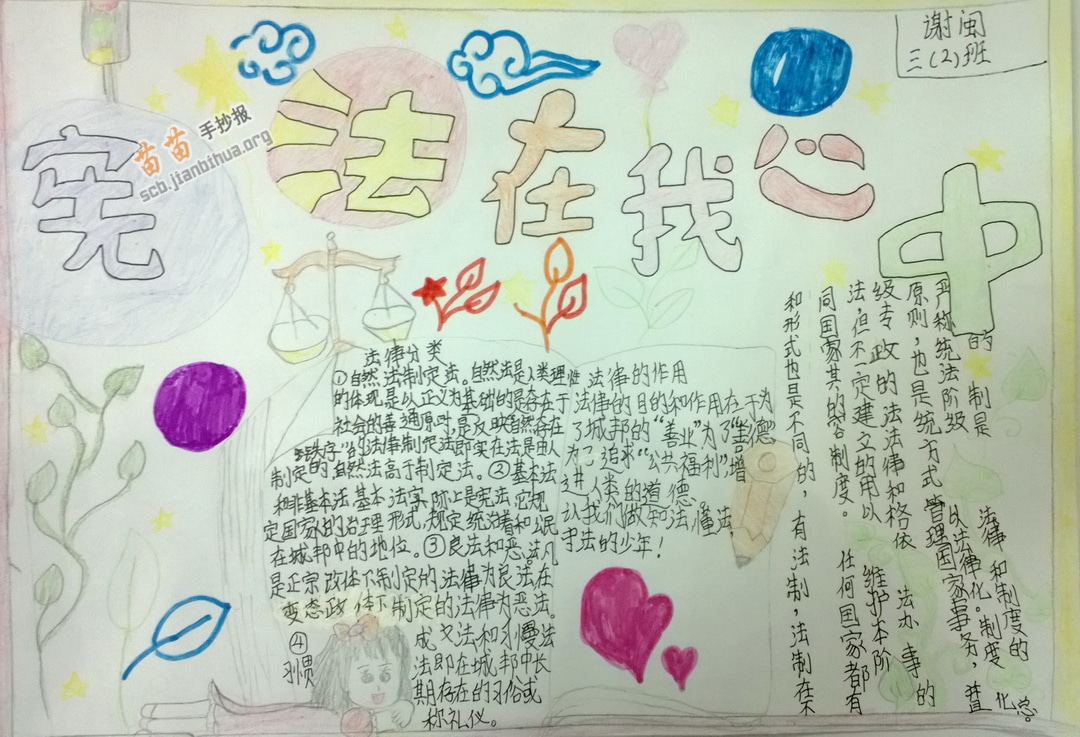 谢闽
三(2)班
宪法在我心中
苗苗手抄报
scb.jianbihua.org
法律分类
①自然法制定法。自然法是人类理性
的体现是以正义为基础的是存在于
社会的普遍原则,是反映自然存在
秩序"的法律制定法即实在法是由人
制定的自然法高于制定法。②基本法
和非基本法基本法实际上是宪法,它规
定国家的治理形式,规定统治者和公民
在城邦中的地位。③良法和恶法凡
是正宗政体下制定的法律为良法在
变态政体下制定的法律为恶法。
④
习惯
成文法和习惯法
法即在城邦中长
期存在的习俗或
称礼仪。
法律的作用
法律的目的和作用在于为
了城邦的"善业"为了"善德"
为了追求"公共福利",增
进人类的道德
让我们做知法,懂法,
守法的少年!
的制是
严称统法阶级
原则,也是统方式管理国家事务,并且
级专政的法法律和格依法办事的
法,但不一定建立的用以维护本阶
同国家其的容制度。任何国家都有
和形式也是不同的,有法制,法制在不
法律和制度的
以法律化。制度
化